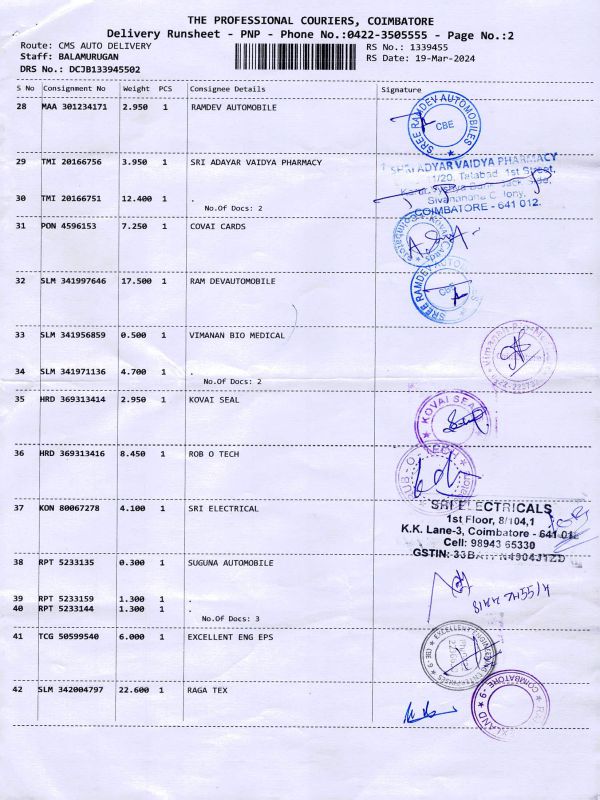 THE PROFESSIONAL COURIERS, COIMBATORE
Delivery Runsheet - PNP - Phone No.:0422-3505555 - Page No.:2
Route: CMS AUTO DELIVERY RS No.: 1339455
Staff: BALAMURUGAN RS Date: 19-Mar-2024
DRS No.: DCJB133945502
S No Consignment No Weight PCS Consignee Details Signature
28 MAA 301234171 2.950 1 RAMDEV AUTOMOBILE
SREE RAMDEV AUTOMOBILES
CBE
29 TMI 20166756 3.950 1 SRI ADAYAR VAIDYA PHARMACY
SHRI ADYAR VAIDYA PHARMACY
Tatabad, 1st Street,
Sivananda Colony,
COIMBATORE - 641 012.
30 TMI 20166751 12.400 1 .
No.Of Docs: 2
31 PON 4596153 7.250 1 COVAI CARDS
32 SLM 341997646 17.500 1 RAM DEVAUTOMOBILE
SREE RAMDEV AUTOMOBILES
CBE
33 SLM 341956859 0.500 1 VIMANAN BIO MEDICAL
34 SLM 341971136 4.700 1 .
No.Of Docs: 2
35 HRD 369313414 2.950 1 KOVAI SEAL
KOVAI SEAL
36 HRD 369313416 8.450 1 ROB O TECH
37 KON 80067278 4.100 1 SRI ELECTRICAL
SRI ELECTRICALS
1st Floor, 8/104,1
K.K. Lane-3, Coimbatore - 641 012
Cell: 98943 65330
38 RPT 5233135 0.300 1 SUGUNA AUTOMOBILE
39 RPT 5233159 1.300 1 .
40 RPT 5233144 1.300 1 .
No.Of Docs: 3
41 TCG 50599540 6.000 1 EXCELLENT ENG EPS
EXCELLENT ENGINEERING
42 SLM 342004797 22.600 1 RAGA TEX
COIMBATORE - 9